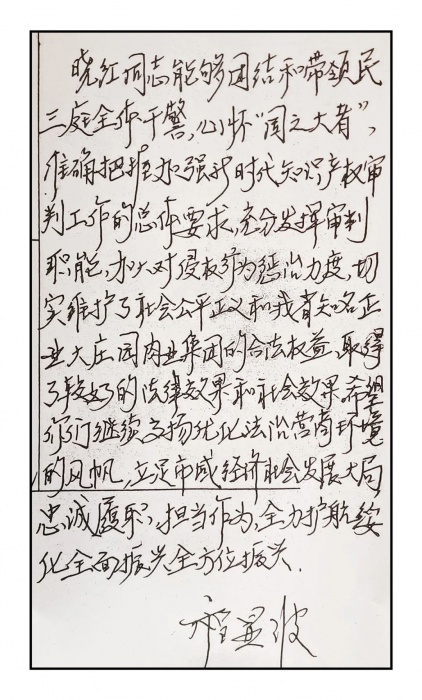 晓红同志能够团结和带领民
三庭全体干警,心怀“国之大者”,
准确把握加强新时代知识产权审
判工作的总体要求,充分发挥审判
职能,加大对侵权行为惩治力度,切
实维护了社会公平正义和我省知名企
业大庄园肉业集团的合法权益,取得
了较好的法律效果和社会效果.希望
你们继续高扬优化法治营商环境
的风帆,立足市域经济社会发展大局
忠诚履职,担当作为,全力护航绥
化全面振兴全方位振兴.
显波